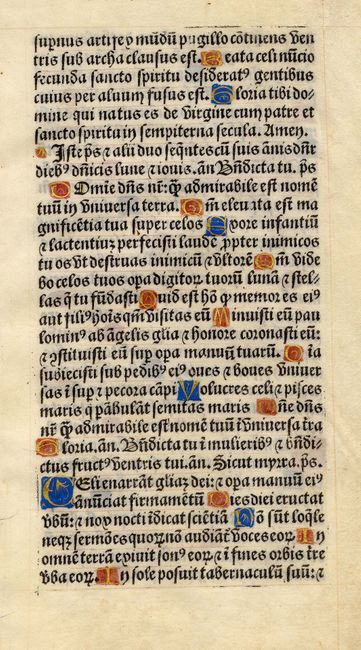 supnus artifex mūdū pugillo cōtinens ven
tris sub archa clausus est. Beata celi nūcio
fecunda sancto spiritu desideratꝰ gentibus
cuius per aluum fusus est. Gloria tibi do-
mine qui natus es de virgine cum patre et
sancto spiritu in sempiterna secula. Amen.
Iste ps̄ ⁊ alii duo seqn̄tes cū suis an̄is dn̄r
diebꝰ dn̄icis lune ⁊ iouis. an̄ Bn̄dicta tu. ps̄
Domie dn̄s nr̄: q̄ꝫ admirabile est nomē
tuū in vniuersa terra. Qm̄ eleuata est ma
gnificētia tua super celos Ex ore infantiū
⁊ lactentiuꝫ perfecisti laudē ꝓpter inimicos
tuos vt destruas inimicū ⁊ vltorē Qm̄ vide
bo celos tuos opa digitoꝝ tuorū lunā ⁊ stel-
las q̄ tu fūdasti Quid est hō ꝙ memor es eiꝰ
aut filiꝰ hois qm̄ visitas eū Minuisti eū pau
lominꝰ ab āgelis glia ⁊ honore coronasti eū:
⁊ ꝯstituisti eū sup opa manuū tuarū. Oīa
subiecisti sub pedibꝰ eiꝰ oues ⁊ boues vniuer
sas īsup ⁊ pecora cāpi Volucres celi ⁊ pisces
maris q̄ pābulāt semitas maris Dn̄e dn̄s
nr̄ q̄ꝫ admirabile est nomē tuū ī vniuersa tr̄a
Gloria. an̄. Bn̄dicta tu ī mulieribꝰ ⁊ bn̄di-
ctus fructꝰ ventris tui. an̄. Sicut myrra. ps̄.
Celi enarrāt gliaꝫ dei: ⁊ opa manuū eiꝰ
ānūciat firmamētū Dies diei eructat
vbū: ⁊ nox nocti īdicat sciētiā Nō sūt loq̄le
neqꝫ sermōes quorꝫ nō audiāt̄ voces eoꝝ In
omnē terrā exiuit sonꝰ eoꝝ ⁊ ī fines orbis tr̄e
vba eoꝝ. In sole posuit tabernaculū suū: ⁊